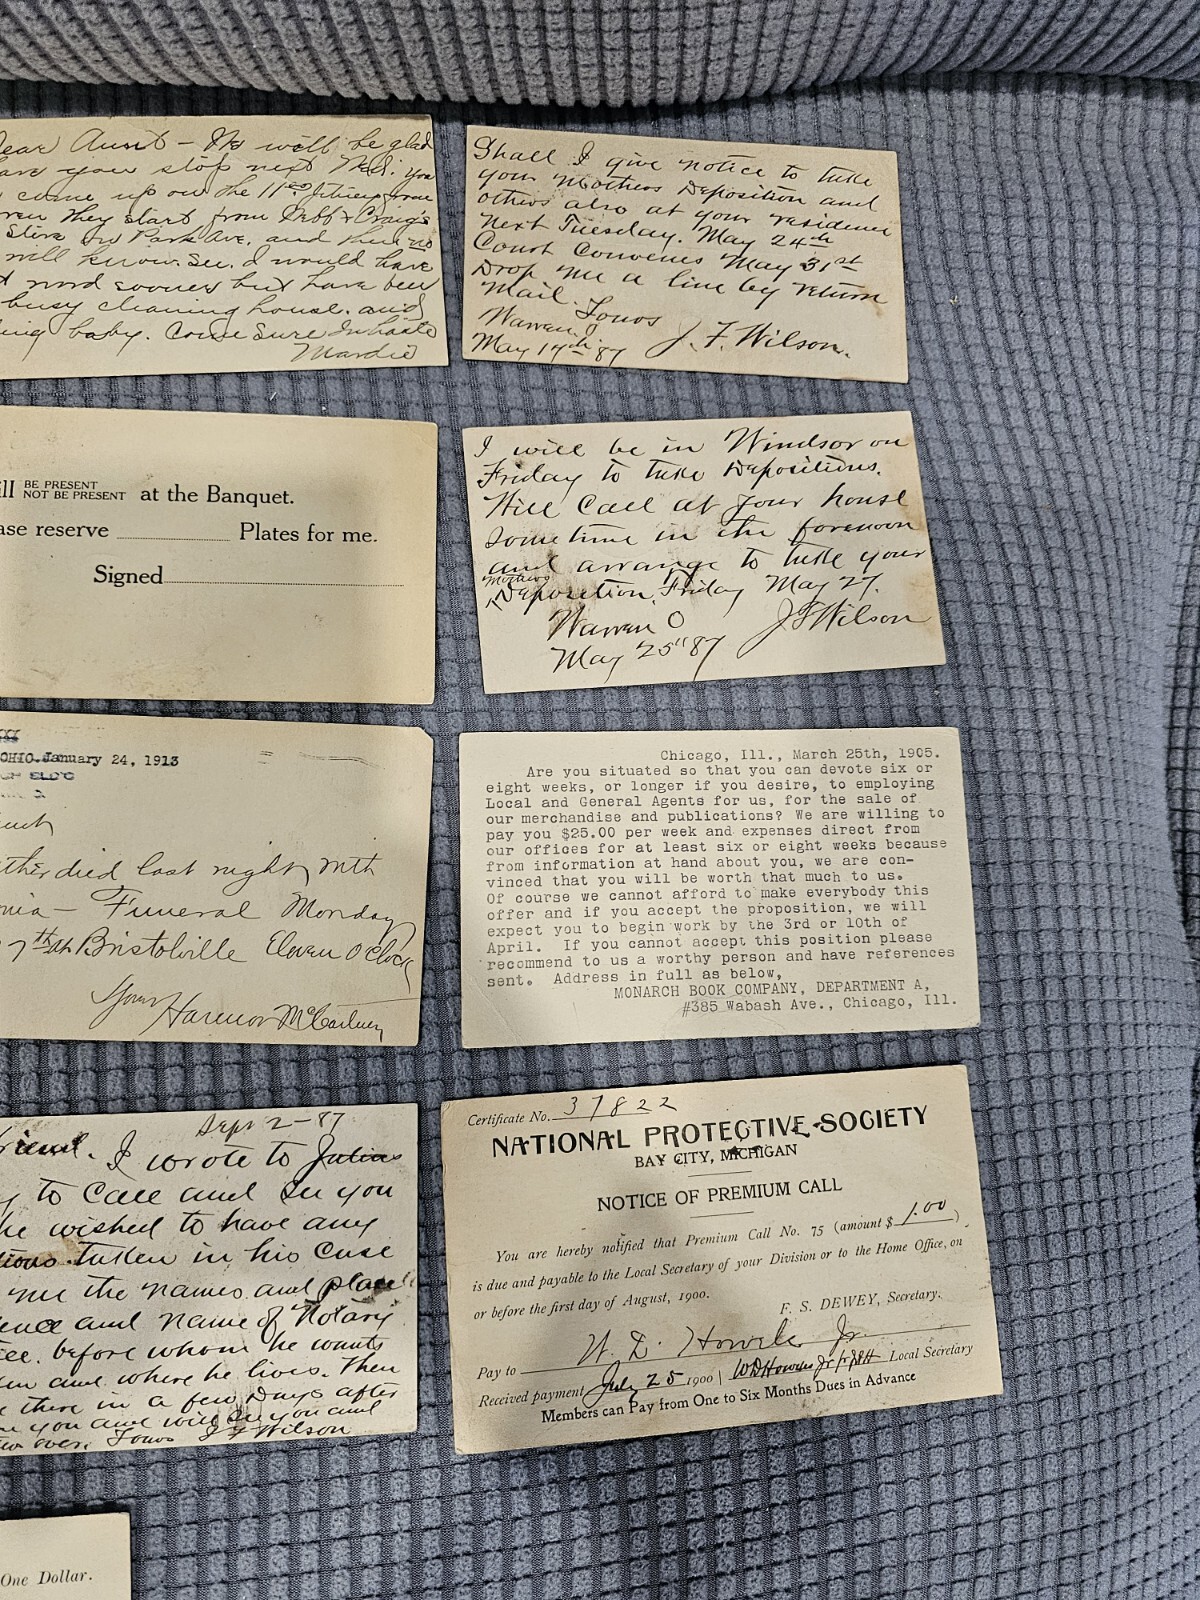 Aunt - We will be glad
you stop next Wed. you
come up on the 11
they start from & Craig's
Store on Park Ave. and then
will know. See. I would have
word sooner but have been
busy cleaning house. and
baby. Come Sure In haste
Mardie
Shall I give notice to take
your Mothers Deposition and
others also at your residence
Next Tuesday. May 24th
Court Convenes May 31st
Drop me a line by return
Mail. Yours
Warren O
May 19th 87 J. F. Wilson.
BE PRESENT
NOT BE PRESENT at the Banquet.
reserve Plates for me.
Signed
I will be in Windsor on
Friday to take Depositions.
Will Call at your house
sometime in the forenoon
and arrange to take your
Mothers
Deposition, Friday May 27.
Warren O J F Wilson
May 25" 87
OHIO. January 24, 1913
died last night with
Funeral Monday
Bristolville Eleven O'Clock
Yours
McCartney
Chicago, Ill., March 25th, 1905.
Are you situated so that you can devote six or
eight weeks, or longer if you desire, to employing
Local and General Agents for us, for the sale of
our merchandise and publications? We are willing to
pay you $25.00 per week and expenses direct from
our offices for at least six or eight weeks because
from information at hand about you, we are con-
vinced that you will be worth that much to us.
Of course we cannot afford to make everybody this
offer and if you accept the proposition, we will
expect you to begin work by the 3rd or 10th of
April. If you cannot accept this position please
recommend to us a worthy person and have references
sent. Address in full as below,
MONARCH BOOK COMPANY, DEPARTMENT A,
#385 Wabash Ave., Chicago, Ill.
Sept 2-87
I wrote to Julius
to Call and See you
he wished to have any
taken in his Case
me the names and place
and name of Notary
before whom he wants
and where he lives. Then
there in a few Days after
you and will See you and
Yours J F Wilson
Certificate No. 37822
NATIONAL PROTECTIVE SOCIETY
BAY CITY, MICHIGAN
NOTICE OF PREMIUM CALL
You are hereby notified that Premium Call No. 75 (amount $ 1.00 )
is due and payable to the Local Secretary of your Division or to the Home Office, on
or before the first day of August, 1900.
F. S. DEWEY, Secretary.
Pay to W. D. Howels Jr.
Received payment July 25 1900 Local Secretary
Members can Pay from One to Six Months Dues in Advance
One Dollar.